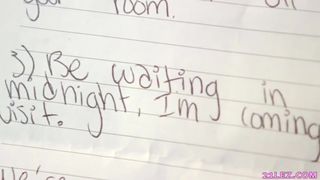 your room. off
3) Be waiting in
midnight, Im coming
visit.
21LEZ.COM